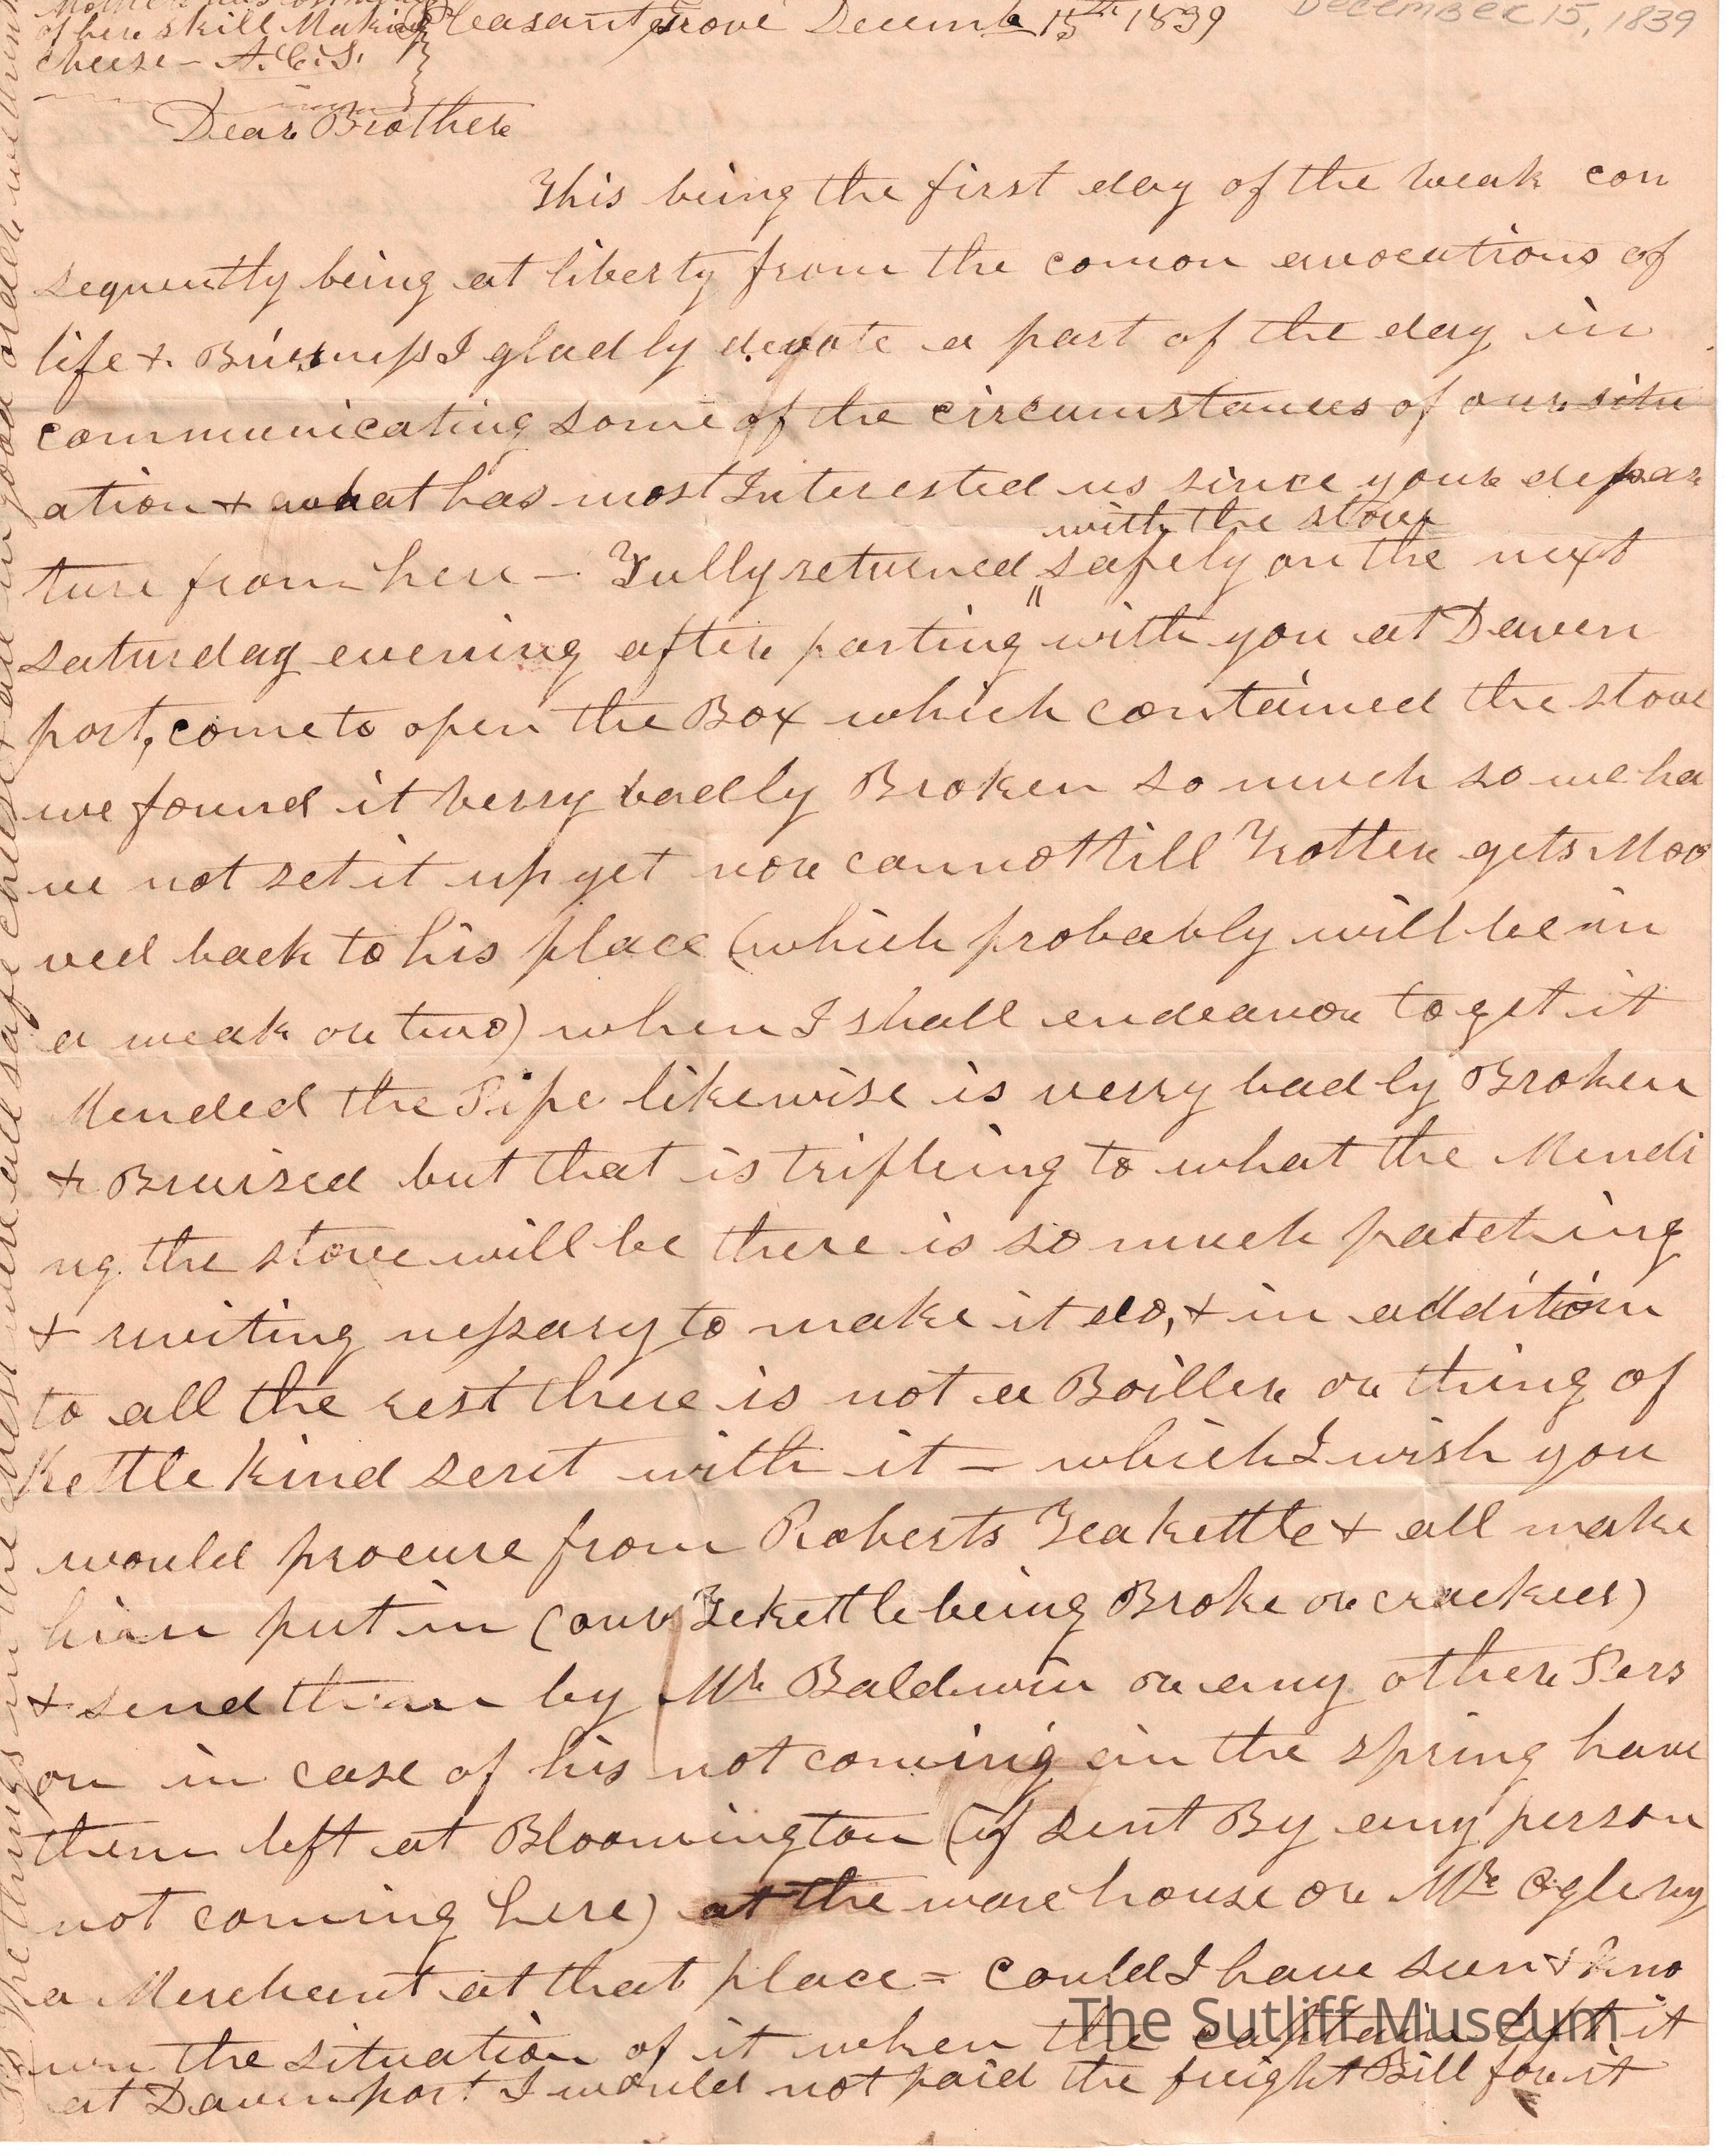 of her skill Making
cheese - A. C. S.
Pleasant Grove Decemb 15th 1839
December 15, 1839
Dear Brother
This being the first day of the weak con
sequently being at liberty from the comon avocations of
life & Buisness I gladly devote a part of the day in
communicating some of the circumstances of our situ
ation & what has most Interested us since your depar
ture from here - Tully returned safely on the next
with the stove
saturday evening after parting with you at Daven
port, come to open the Box which contained the stove
we found it verry badly Broken so much so we ha
ve not set it up yet nor cannot till Trotter gets Moo
ved back to his place (which probably will be in
a weak or two) when I shall endeavor to get it
Mended the Pipe likewise is verry badly Broken
& Bruised but that is trifling to what the Mendi
ng the stove will be there is so much patching
& riviting nessary to make it do, & in addition
to all the rest there is not a Boiller or thing of
Kettle kind sent with it - which I wish you
would procure from Roberts Teakettle & all make
him put in (our Tekettle being Broke or cracked)
& send them by Mr Baldwin or any other Pers
on in case of his not coming in the spring have
them left at Bloomington (if sent By any person
not coming here) at the ware house or Mr
a Merchant at that place = could I have seen & kno
wn the situation of it when the captain left it
at Davenport I would not paid the freight Bill for it
The Sutliff Museum